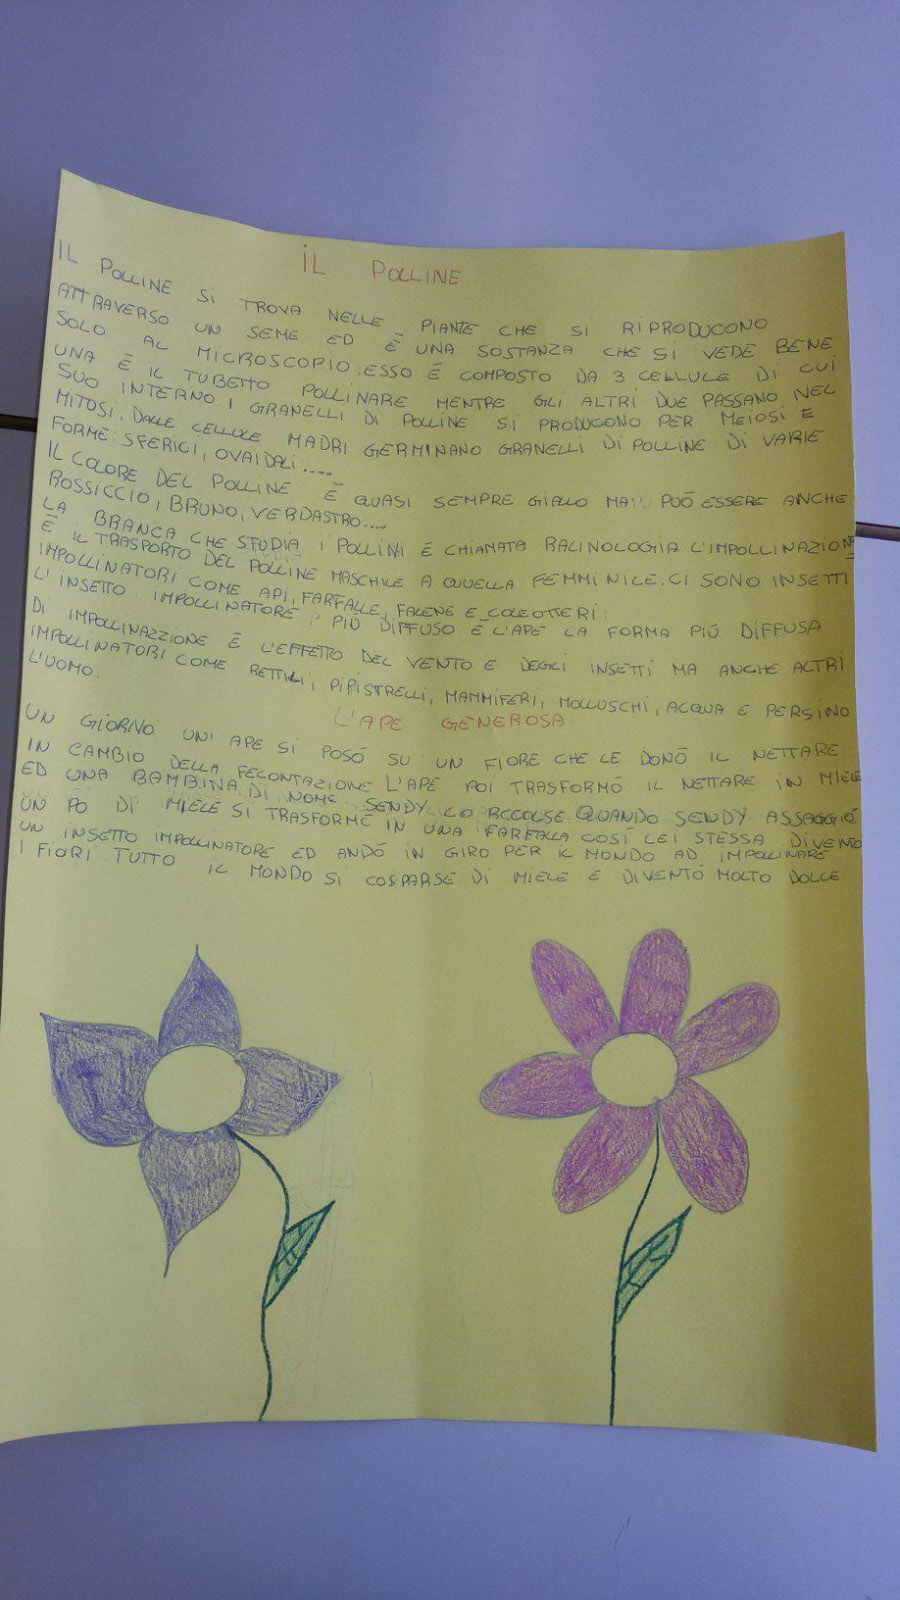 IL POLLINE
IL POLLINE SI TROVA NELLE PIANTE CHE SI RIPRODUCONO
ATTRAVERSO UN SEME ED È UNA SOSTANZA CHE SI VEDE BENE
SOLO AL MICROSCOPIO. ESSO È COMPOSTO DA 3 CELLULE DI CUI
UNA È IL TUBETTO POLLINARE MENTRE GLI ALTRI DUE PASSANO NEL
SUO INTERNO. I GRANELLI DI POLLINE SI PRODUCONO PER MEIOSI E
MITOSI. DALLE CELLULE MADRI GERMINANO GRANELLI DI POLLINE DI VARIE
FORME: SFERICI, OVAIDALI....
IL COLORE DEL POLLINE È QUASI SEMPRE GIALLO MA PUÒ ESSERE ANCHE
ROSSICCIO, BRUNO, VERDASTRO....
LA BRANCA CHE STUDIA I POLLINI È CHIAMATA RALINOLOGIA L'IMPOLLINAZIONE
È IL TRASPORTO DEL POLLINE MASCHILE A QUELLA FEMMINILE. CI SONO INSETTI
IMPOLLINATORI COME API, FARFALLE, FALENE E COLEOTTERI.
L'INSETTO IMPOLLINATORE PIÙ DIFFUSO È L'APE LA FORMA PIÙ DIFFUSA
DI IMPOLLINAZZIONE È L'EFFETTO DEL VENTO E DEGLI INSETTI MA ANCHE ALTRI
IMPOLLINATORI COME RETTILI, PIPISTRELLI, MAMMIFERI, MOLLUSCHI, ACQUA E PERSINO
L'UOMO.
L'APE GENEROSA
UN GIORNO UN'APE SI POSÒ SU UN FIORE CHE LE DONÒ IL NETTARE
IN CAMBIO DELLA FECONTAZIONE L'APE POI TRASFORMÒ IL NETTARE IN MIELE
ED UNA BAMBINA DI NOME SENDY LO RCCOLSE. QUANDO SENDY ASSAGGIÒ
UN PO DI MIELE SI TRASFORMÈ IN UNA FARFALLA COSÌ LEI STESSA DIVENTÒ
UN INSETTO IMPOLLINATORE ED ANDÒ IN GIRO PER IL MONDO AD IMPOLLINARE
I FIORI TUTTO IL MONDO SI COSPARSE DI MIELE E DIVENTÒ MOLTO DOLCE